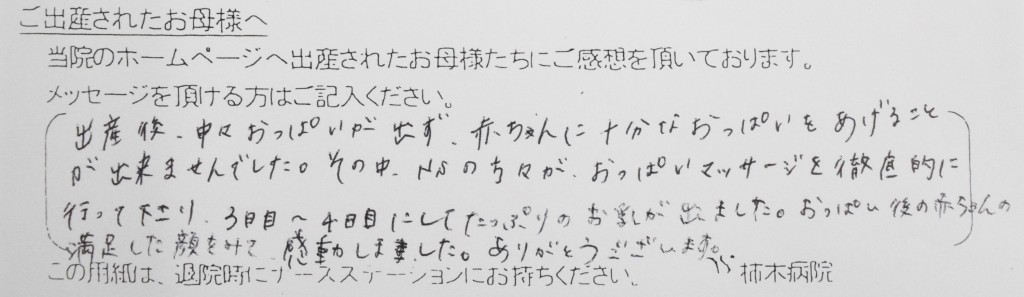 ご出産されたお母様へ
当院のホームページへ出産されたお母様たちにご感想を頂いております。
メッセージを頂ける方はご記入ください。
出産後、中々おっぱいが出ず、赤ちゃんに十分なおっぱいをあげること
が出来ませんでした。その中、NSの方々が、おっぱいマッサージを徹底的に
行って下さり、3日目〜4日目にしてたっぷりのお乳が出ました。おっぱい後の赤ちゃんの
満足した顔をみて、感動しました。ありがとうございます。
この用紙は、退院時にナースステーションにお持ちください。 柿木病院